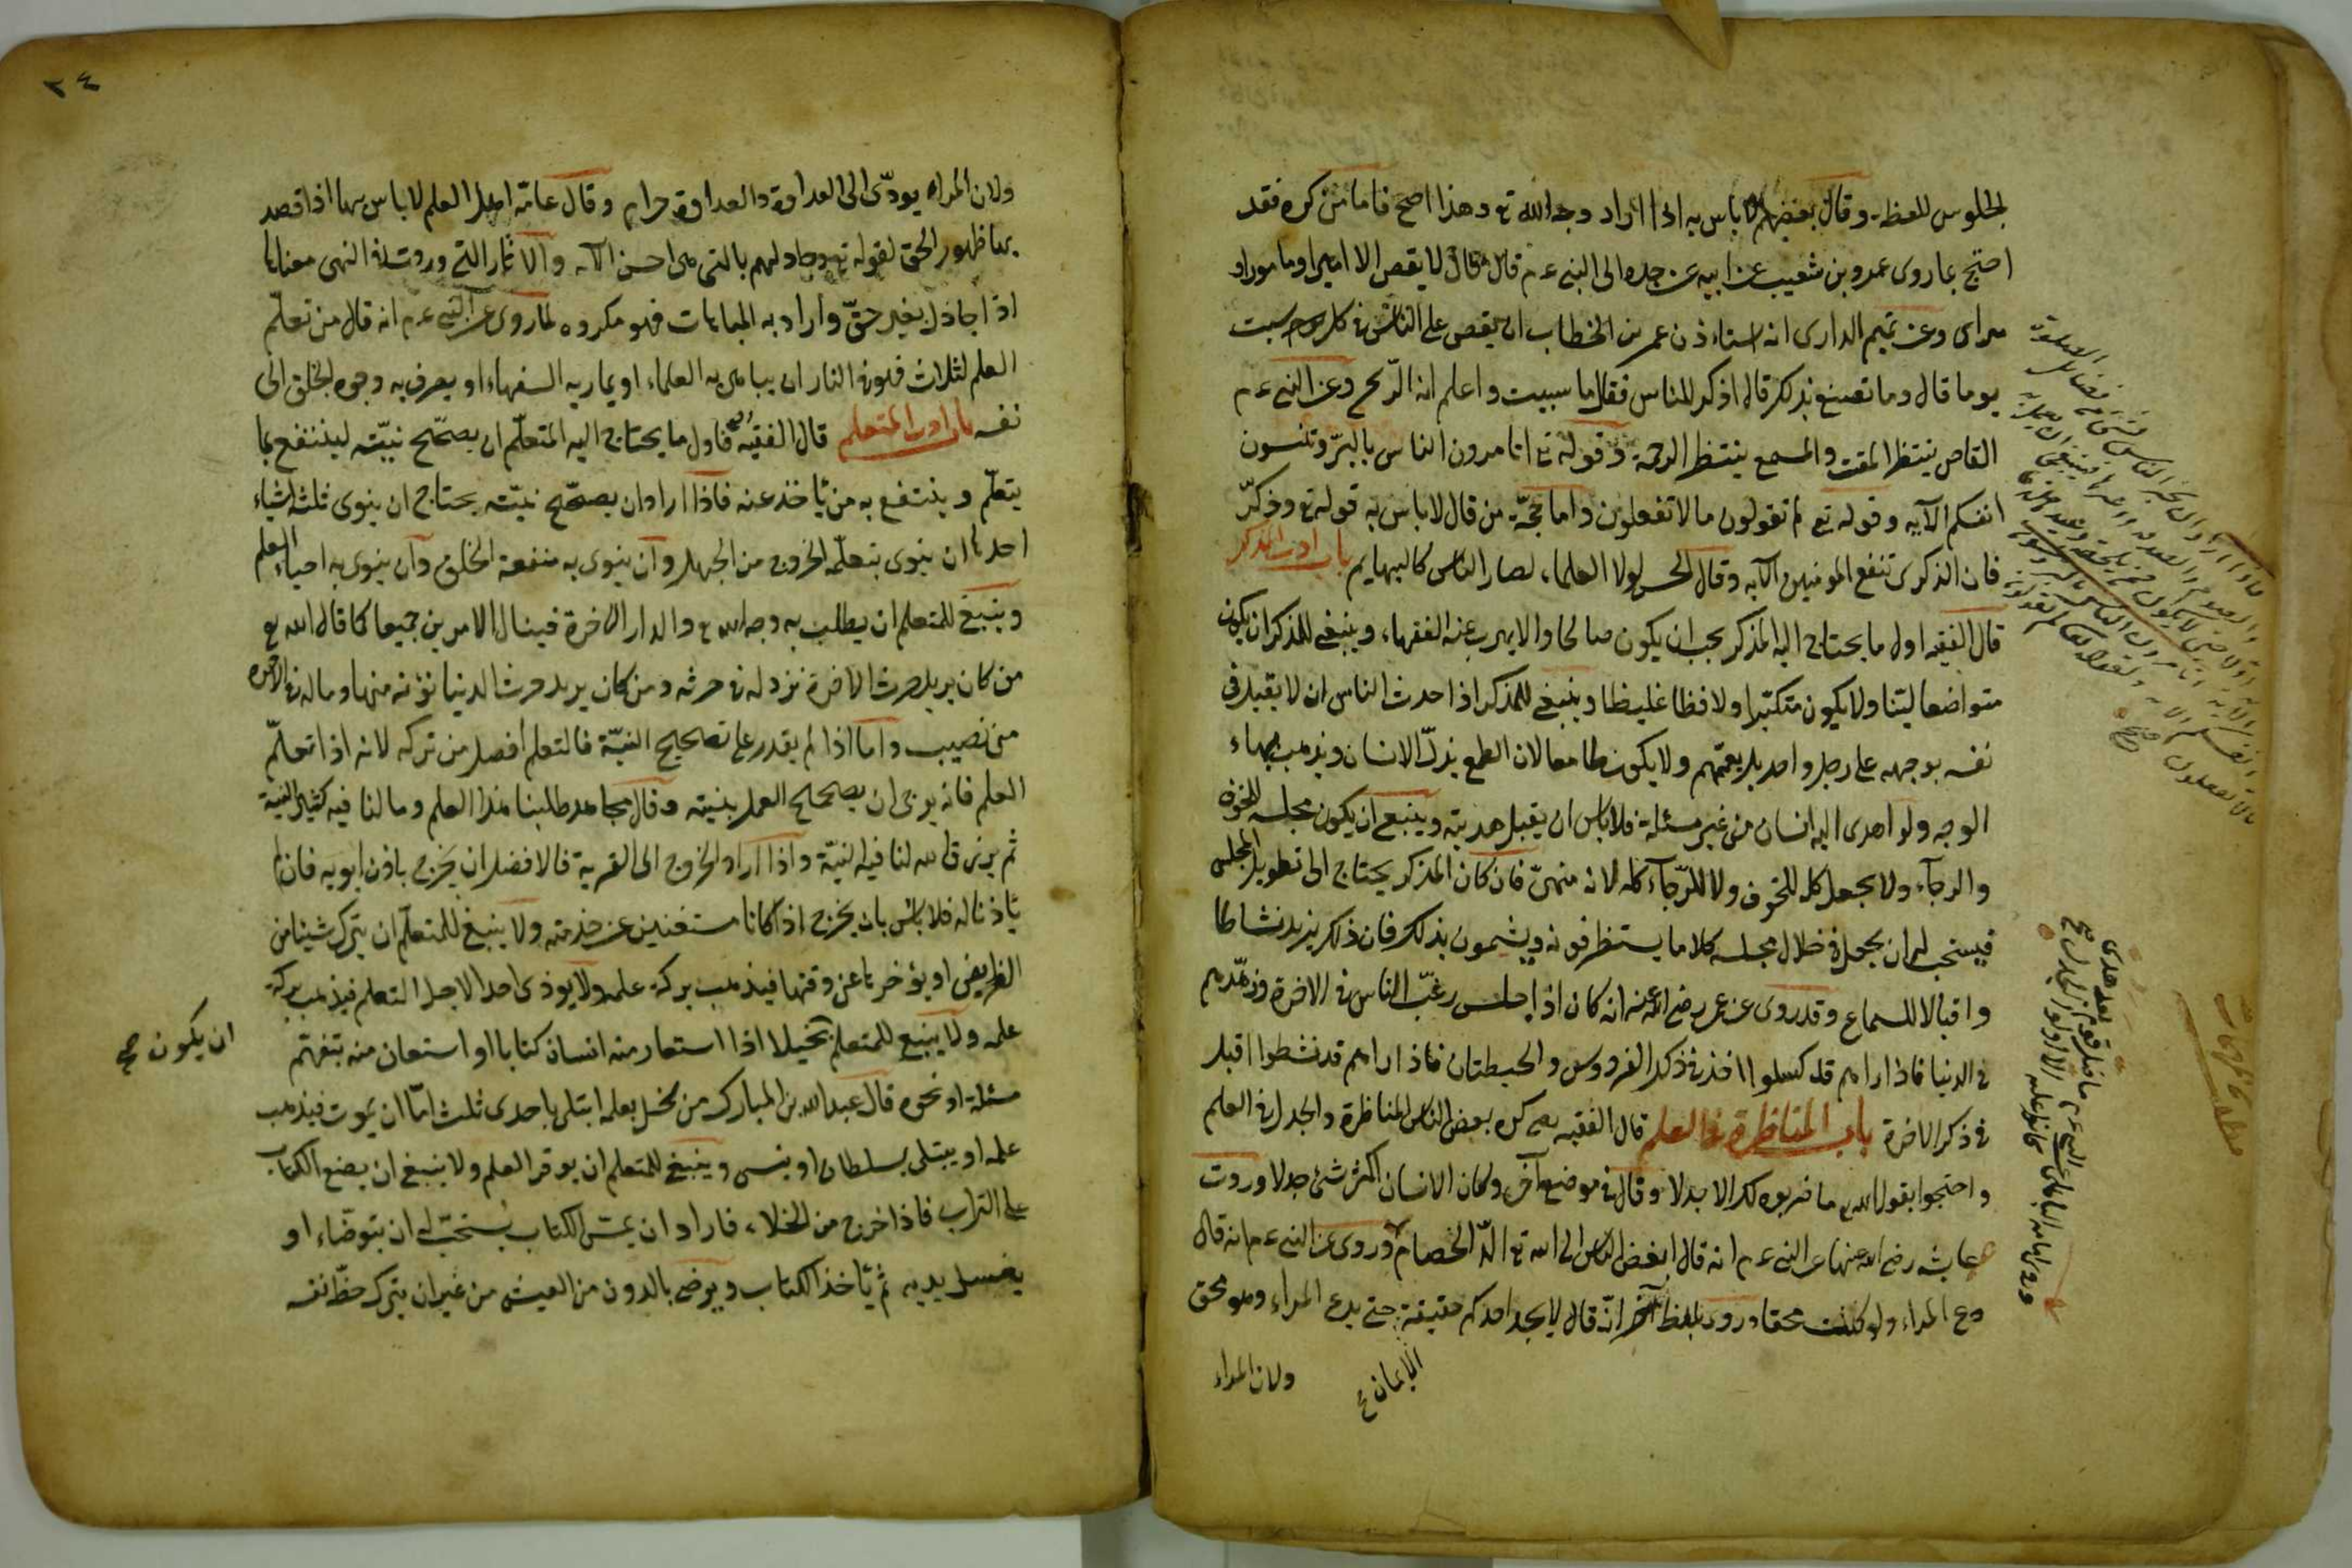 لجلوس للعظة وقال بعضهم لا باس به اذا اراد وجه الله تع وهذا اصح فاما من كره فقد
احتج بما روى عمرو بن شعيب عن ابيه عن جده الى النبي ع م قال لا يقص الا امير او مامور او
مراى وعن تميم الدارى انه استاذن عمر بن الخطاب ان يقص على الناس في كل سبت
يوما قال وما تصنع بذلك قال اذكر للناس فقال ما سبيت واعلم انه الذبح وعن النبي ع م
القاص ينتظر المقت والمسمع ينتظر الرحمة وقوله تع اتامرون الناس بالبر وتنسون
انفسكم الآيه وقوله تع لم تقولون ما لا تفعلون واما حجة من قال لا باس به قوله تع وذكر
فان الذكرى تنفع المومنين الآيه وقال الحسن لولا العلماء لصار الناس كالبهايم باب ادب المذكر
قال الفقيه اول ما يحتاج اليه المذكر يجب ان يكون صالحا والا يهرب عنه الفقهاء وينبغي للمذكر ان يكون
متواضعا لينا ولا يكون متكبرا ولا فظا غليظا وينبغي للمذكر اذا حدث الناس ان لا يقبل في
نفسه بوجهه على رجل واحد بل يعمهم ولا يكون طامعا لان الطمع يذل الانسان ويذهب ببهاء
الوجه ولو اهدى اليه انسان من غير مسئلة فلا باس ان يقبل هديته وينبغي ان يكون مجلسه للخوف
والرجاء ولا يجعل كله للخوف ولا للرجاء كله لانه منهى فان كان المذكر يحتاج الى تطويل المجلس
فيستحب له ان يجعل في خلال مجلسه كلاما يستظرفونه ويتبسمون بذلك فان ذلك يزيد نشاطا
واقبالا للسماع وقد روى عن عمر رضى الله عنه انه كان اذا جلس رغب الناس في الاخرة وزهدهم
في الدنيا فاذا راهم قد كسلوا اخذ في ذكر الفردوس والحيطان فاذا راهم قد نشطوا اقبل
في ذكر الاخرة باب المناظرة في العلم قال الفقيه رح كره بعض الناس المناظرة والجدل في العلم
واحتجوا بقول الله تع ما ضربوه لك الا جدلا وقال في موضع آخر وكان الانسان اكثر شئ جدلا وروت
عايشه رضى الله عنها عن النبي ع م انه قال ابغض الناس الى الله تع الد الخصام وروى عن النبي ع م انه قال
دع المراء ولو كنت محقا وروى بلفظ آخر انه قال لا يجد احدكم حقيقة حتى يدع المراء وهو محق
الايمان
ولان المراء
٢٤
ولان المراء يودى الى العداوة والعداوة حرام وقال عامة اهل العلم لا باس بها اذا قصد
بها ظهور الحق لقوله تع وجادلهم بالتى هى احسن الآيه والآثار التى وردت في النهى معناها
اذا جادل بغير حق واراد به المباهات فهو مكروه لما روى عن النبي ع م انه قال من تعلم
العلم لثلاث فهو في النار ان يباهى به العلماء او يمارى به السفهاء او يصرف به وجوه الخلق الى
نفسه باب ادب المتعلم قال الفقيه رح فاول ما يحتاج اليه المتعلم ان يصحح نيته لينتفع بما
يتعلم وينتفع به من يأخذ عنه فاذا اراد ان يصحح نيته يحتاج ان ينوى ثلثة اشياء
احدها ان ينوى بتعلمه الخروج من الجهل وان ينوى به منفعة الخلق وان ينوى به احياء العلم
وينبغي للمتعلم ان يطلب به وجه الله تع والدار الاخرة فينال الامرين جميعا كما قال الله تع
من كان يريد حرث الاخرة نزد له في حرثه ومن كان يريد حرث الدنيا نؤته منها وما له في الاخره
من نصيب واما اذا لم يقدر على تصحيح النية فالتعلم افضل من تركه لانه اذا تعلم
العلم فانه يرجى ان يصحح العلم بنيته وقال مجاهد طلبنا هذا العلم وما لنا فيه كثير النية
ثم يرزق الله لنا فيه النية واذا اراد الخروج الى الغربة فالافضل ان يخرج باذن ابويه فان لم
يأذنا له فلا باس بان يخرج اذا كانا مستغنين عن خدمته ولا ينبغي للمتعلم ان يترك شيئا من
الفرايض او يؤخرها عن وقتها فيذهب بركة علمه ولا يوذى احدا لاجل التعلم فيذهب بركة
علمه ولا ينبغي للمتعلم بخيلا اذا استعار منه انسان كتابا او استعان منه بتفهم
ان يكون صح
مسئلة او نحوه قال عبد الله بن المبارك من بخل بعلمه ابتلى باحدى ثلث اما ان يموت فيذهب
علمه او يبتلى بسلطان او ينسى وينبغي للمتعلم ان يوقر العلم ولا ينبغي ان يضع الكتاب
على التراب فاذا خرج من الخلاء فاراد ان يمس الكتاب يستحب له ان يتوضاء او
يغسل يديه ثم يأخذ الكتاب ويرضى بالدون من العيش من غير ان يترك حظ نفسه